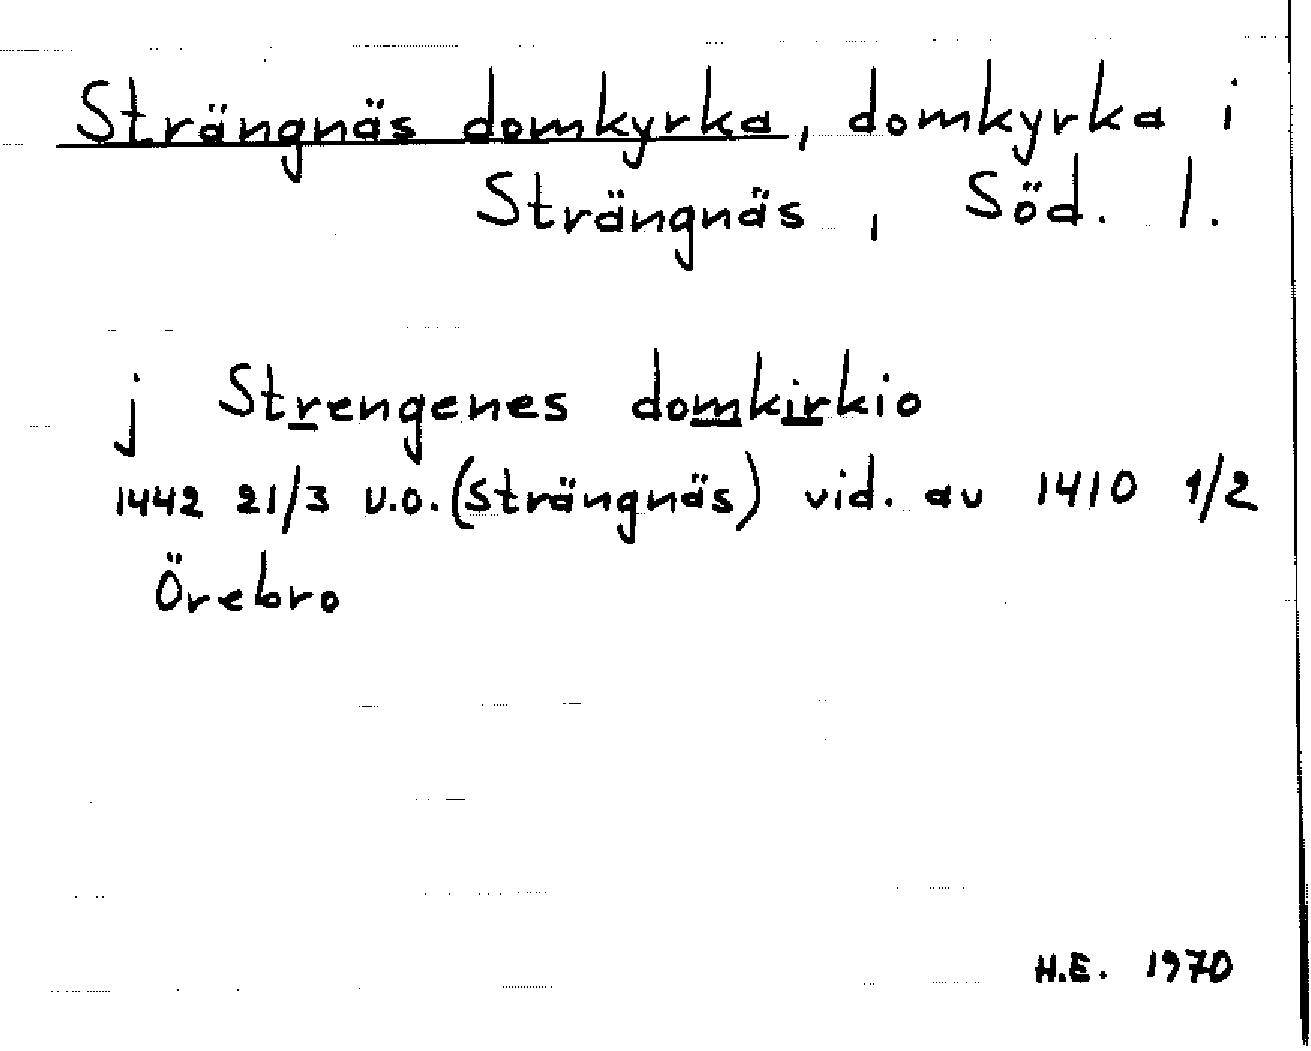 Strängnäs domkyrka, domkyrka i
Strängnäs, Söd. l.
j Strengenes domkirkio
1442 21/3 u.o. (Strängnäs) vid. av 1410 1/2
Örebro
H.E. 1970